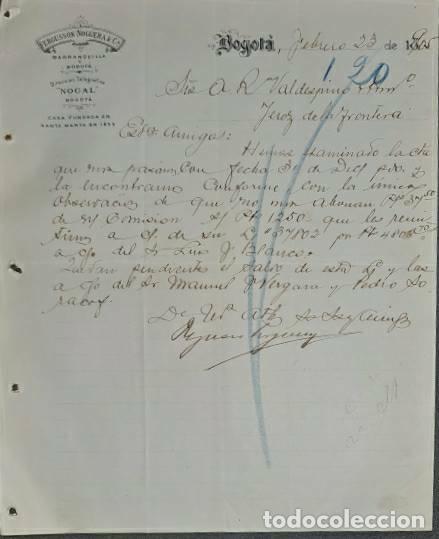 FERGUSSON NOGUERA & Cº
BARRANQUILLA
BOGOTÁ
Dirección Telegráfica
"NOGAL"
BOGOTÁ
CASA FUNDADA EN
SANTA MARTA EN 1855
Bogotá, Febrero 23 de 1905
120
Sres A. R. Valdespino y Hno
Jerez de la Frontera
Est. Amigos:
Hemos examinado la cta
que nos pasaron con fecha 30 de Dic pdo. y
la encontramos conforme con la única
observación de que no nos abonan Pts 37.50
de Comisión s/ Pts 1250 que les remi
timos a c/ de su L/ 37802 por Pts 4806.70
a c/o del Sr Luis J. Blanco.
Quedan pendientes el saldo de esta L/ y las
a c/o del Sr Manuel J. Vergara y Pedro So
racof.
De Uds Atts Ss Ss y Amigos
todocoleccion.net